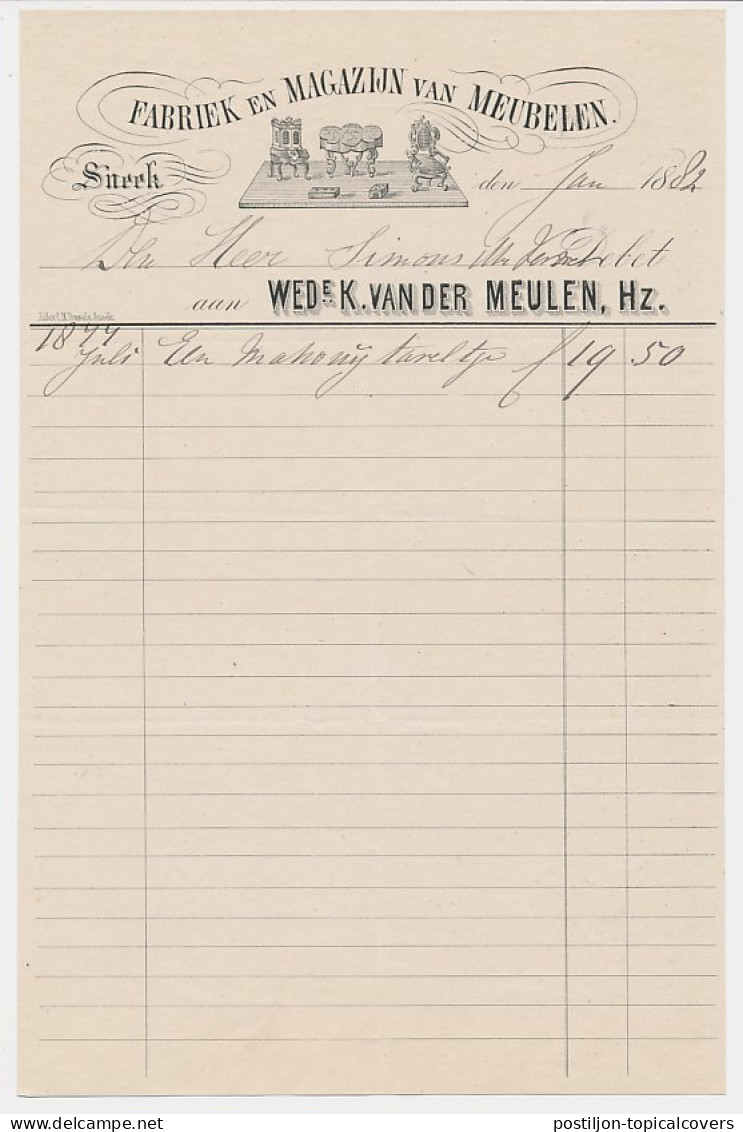 FABRIEK EN MAGAZIJN VAN MEUBELEN.
Sneek
den Jan 1882
Den Heer Simons Debet
aan WEDE. K. VAN DER MEULEN, Hz.
1877
Juli Een Mahony tafeltje f 19 50
postiljon-topicalcovers